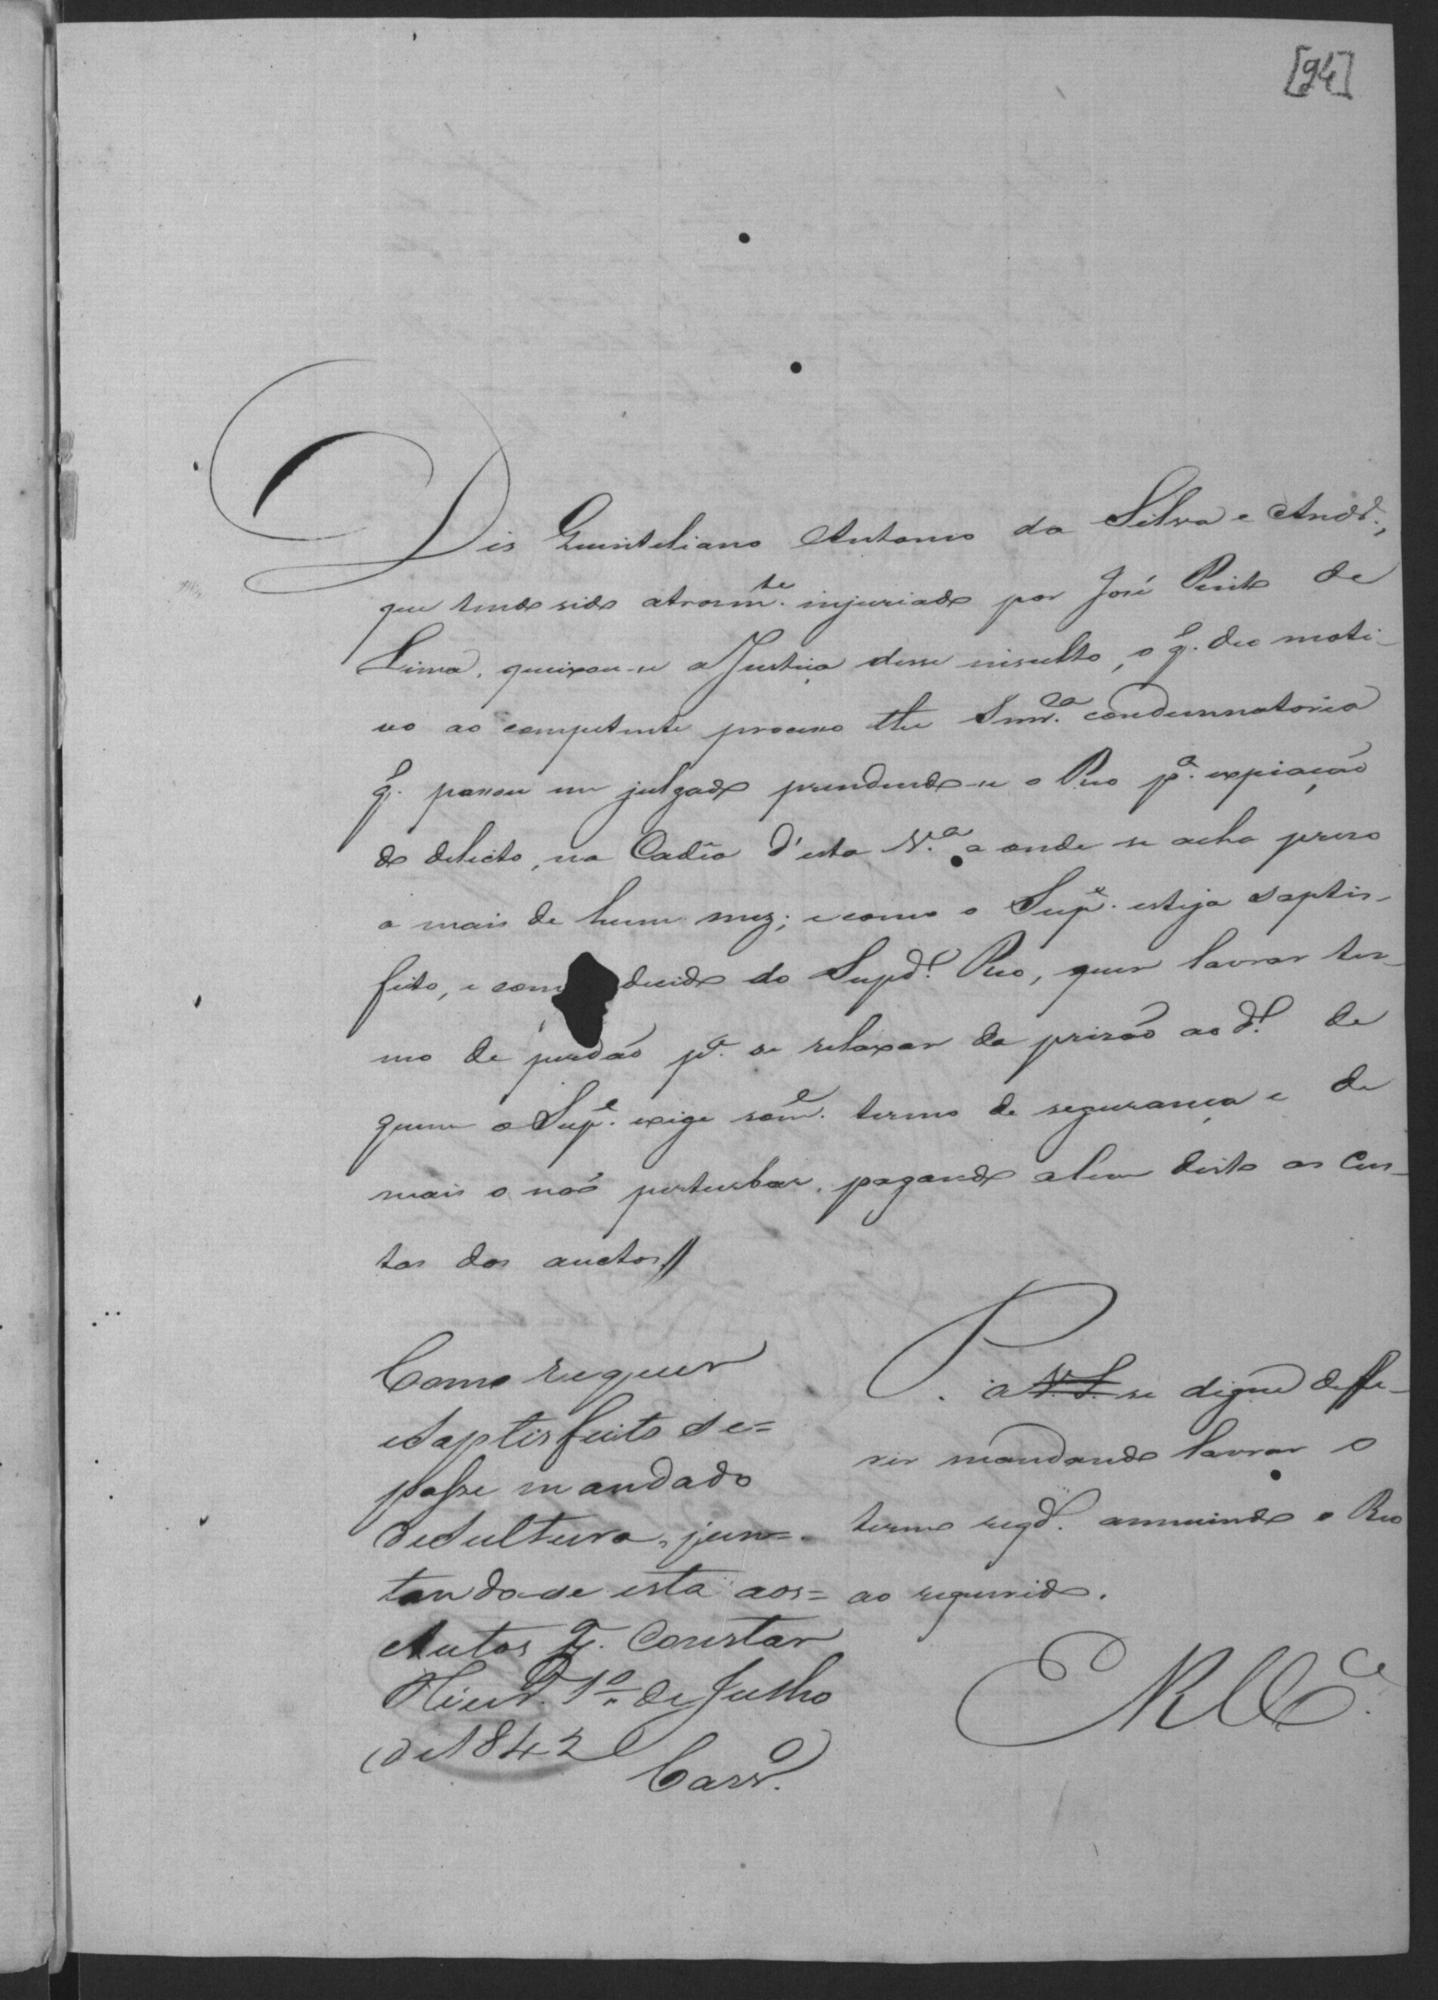 [94]
Dis Quinteliano Antonio da Silva e Andr.,
que tendo sido atrosm.te injuriado por José Pinto de
Lima, queixou-se a Justiça desse insulto, o q. deo moti-
vo ao competente processo the Snn.ca condemnatoria
q. passou em julgado prendendo-se o Reo p.a expiação
do delicto, na Cadêa d'esta V.a a onde se acha prezo
a mais de hum mez; e como o Sup.e esteja saptis-
feito, e com decido do Supd.o Reo, quer lavrar ter-
mo de perdão p.a se relaxar da prizão ao d.o de
quem o Sup.e exige som.e termo de segurança e de
mais o não perturbar, pagando alem disto as Cus-
tas dos auctos//
P. a V.S. se digne deffe-
rir mandando lavrar o
termo reqd.o annuindo o Reo
ao requerido.
E R M.ce
Como requer
e saptisfeito se=
passe mandado
de Soltura, jun=
tando-se esta aos=
Autos q. Constar
1.o de Julho
de 1842
Carv.o